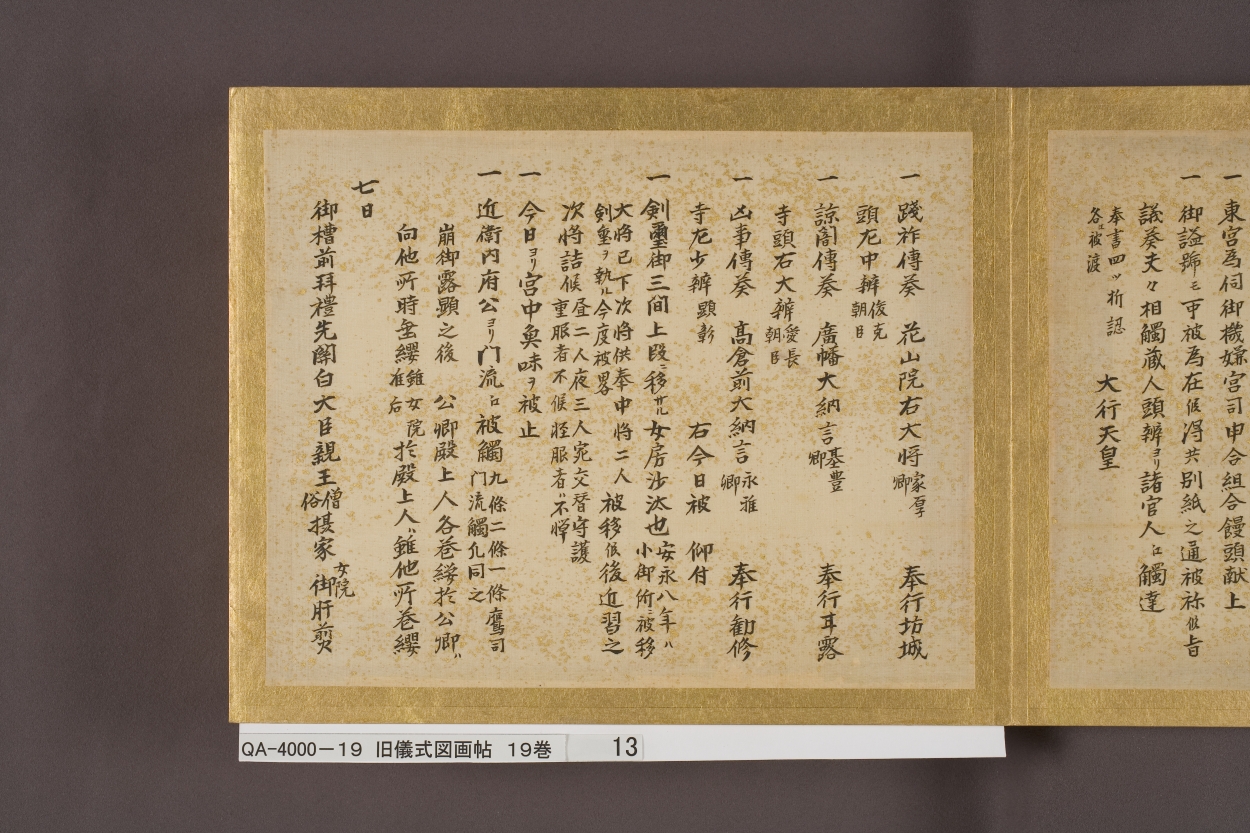 一 東宮為伺御機嫌宮司申合組合饅頭献上
一 御謚號モ可被為在候得共別紙之通被称候旨
議奏夫々相觸蔵人頭辨ヨリ諸官人江觸達
奉書四ッ折認
各江被渡
大行天皇
一 踐祚傳奏 花山院右大将家厚卿 奉行坊城
頭左中辨俊克朝臣
一 諒闇傳奏 廣幡大納言基豊卿 奉行甘露
寺頭右大辨愛長朝臣
一 凶事傳奏 高倉前大納言永雅卿 奉行勧修
寺左少辨顕彰 右今日被 仰付
一 剣璽御三間上段ニ移サル女房沙汰也安永八年ハ小御所ニ被移
大将已下次将供奉中将二人
剣璽ヲ執ル今度被畧 被移候後近習之
次将詰候昼二人夜三人宛交替守護
重服者不候軽服者ハ不憚
一 今日ヨリ宮中魚味ヲ被止
一 近衛内府公ヨリ門流江被觸九條二條一條鷹司
門流觸凡同之
崩御露顕之後 公卿殿上人各巻纓於公卿ハ
向他所時垂纓雖女院准后於殿上人ハ雖他所巻纓
七日
御槽前拜禮先関白大臣親王僧俗摂家女院 御肝煎
QA-4000-19 旧儀式図画帖 19巻 13